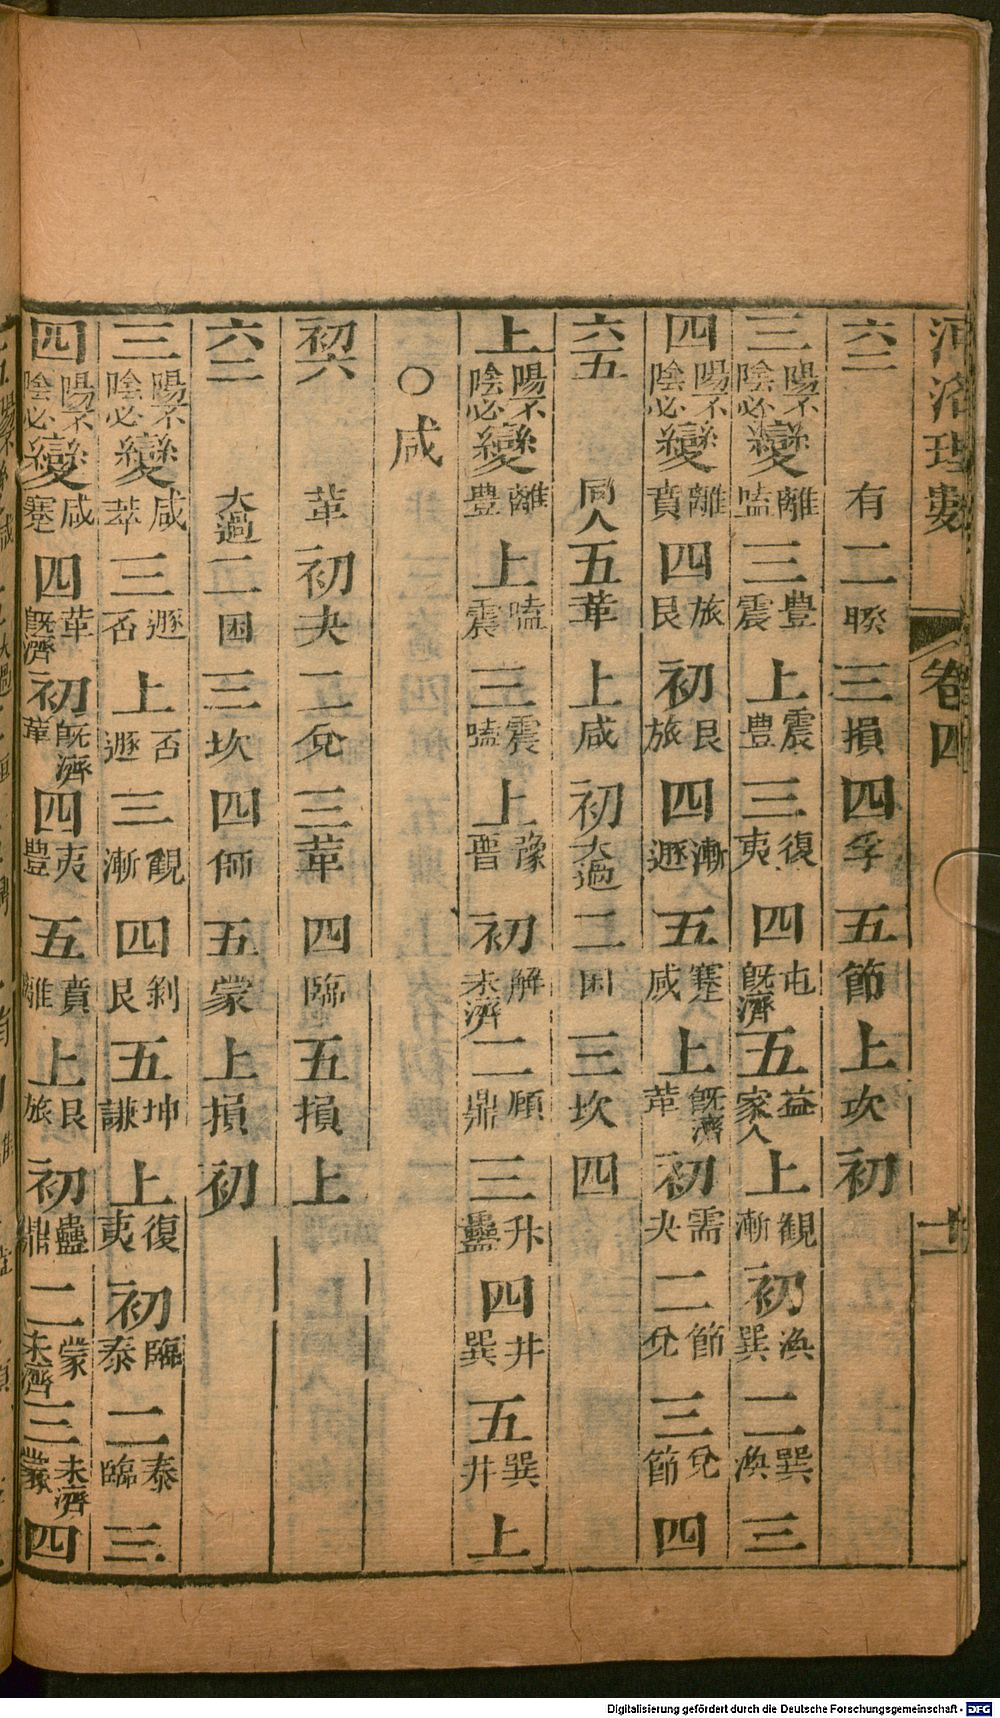 河洛理數 卷四 十一
六二 有 二 睽 三 損 四 孚 五 節 上 坎 初
三 陽不陰必 變 離嗑 三 豊震 上 震豊 三 復夷 四 屯旣濟 五 益家人 上 觀漸 初 渙巽 二 巽渙 三
四 陽不陰必 變 離賁 四 旅艮 初 艮旅 四 漸遯 五 蹇咸 上 旣濟革 初 需夬 二 節兌 三 兌節 四
六五 同人 五 革 上 咸 初 大過 二 困 三 坎 四
上 陽不陰必 變 離豊 上 嗑震 三 震嗑 上 豫晋 初 解未濟 二 頤鼎 三 升蠱 四 井巽 五 巽井 上
○咸
初六 革 初 夬 二 兌 三 革 四 臨 五 損 上
六二 大過 二 困 三 坎 四 師 五 蒙 上 損 初
三 陽不陰必 變 咸萃 三 遯否 上 否遯 三 觀漸 四 剥艮 五 坤謙 上 復夷 初 臨泰 二 泰臨 三
四 陽不陰必 變 咸蹇 四 革旣濟 初 旣濟革 四 夷豊 五 賁離 上 艮旅 初 蠱鼎 二 蒙未濟 三 未濟蒙 四
Digitalisierung gefördert durch die Deutsche Forschungsgemeinschaft - DFG